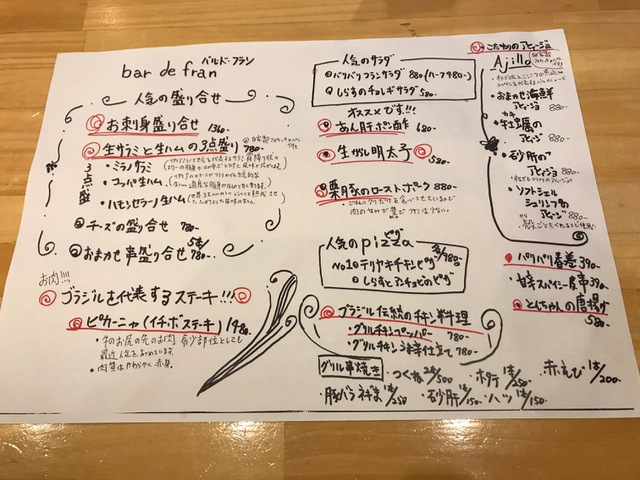 バルド・フラン
bar de fran
人気の盛り合せ
お刺身盛り合せ 1360-
生サラミと生ハムの3点盛り 780-
3点盛
・ミラノサラミ
・コッパ生ハム
・ハモンセラーノ生ハム
チーズの盛り合せ 780-
おまかせ串盛り合せ 5本/780-
お肉!!!
ブラジルを代表するステーキ!!!
ピカーニャ(イチボステーキ) 1480-
・牛のお尻の先のお肉 希少部位としても
最近人気をあつめています。
・肉質はやわらかく赤身。
人気のサラダ
バリバリフランサラダ 880-(ハーフ480-)
しらすのチョレギサラダ 580-
オススメです!!!
あん肝ポン酢 680-
生がし明太子 580-
栗豚のローストポーク 880-
人気のpizza ピザ
各/980-
No.1のテリヤキチキンピザ
しらすとアンチョビのピザ
ブラジル伝統のチキン料理
・グリルチキンペッパー 780-
・グリルチキン 780-
グリル串焼き
・つくね 2本/500
・ホタテ 1本/250
・赤えび 1本/200-
・豚バラネギま 1本/250
・砂肝 1本/150
・ハツ 1本/150-
こだわりのアヒージョ
Ajillo
・おまかせ海鮮
アヒージョ 880-
・牡蠣の カキ
アヒージョ 880-
・砂肝の
アヒージョ 880-
・ソフトシェル
シュリンプの
アヒージョ 880-
パリパリ春巻 390-
390-
・とんちゃんの唐揚げ
580-